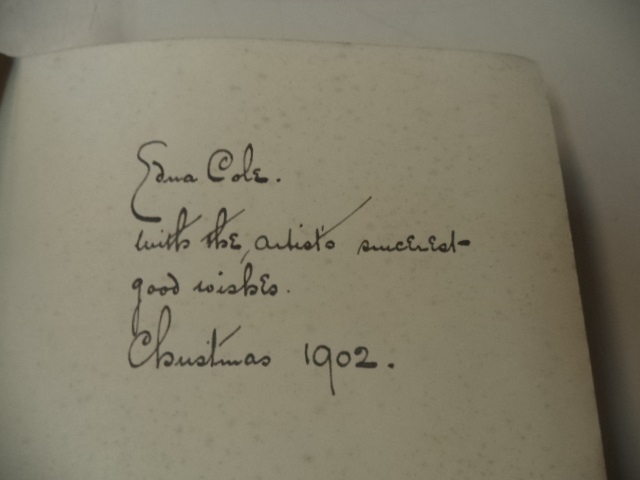 Edna Cole.
with the artist's sincerest
good wishes.
Christmas 1902.